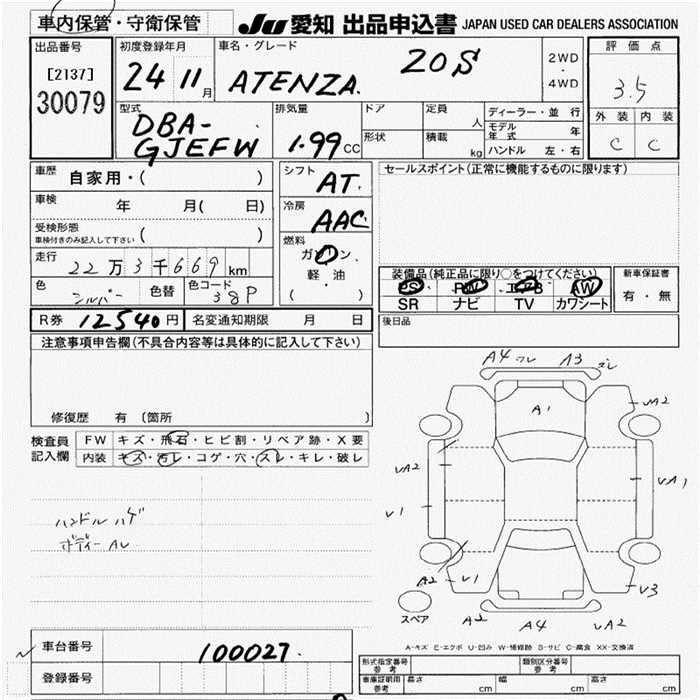 車内保管・守衛保管
JU 愛知 出品申込書 JAPAN USED CAR DEALERS ASSOCIATION
出品番号
[2137]
30079
初度登録年月
24 11月
車名・グレード
ATENZA. 20S
2WD
・
4WD
評価点
3.5
外装 内装
C C
型式
DBA-
GJEFW
排気量
1.99 CC
ドア
形状
定員
人
積載
kg
ディーラー・並 行
モデル年式 年
ハンドル 左・右
車歴
自家用・( )
車検
年 月( 日)
受検形態
車検付きのみ記入して下さい ( )
走行
22万3千669km
色
シルバー
色替
色コード
38P
シフト
AT.
冷房
AAC
燃料
ガソリン
・
軽 油
( )
セールスポイント(正常に機能するものに限ります)
装備品(純正品に限り○をつけてください)
PS PW エアB AW
SR ナビ TV カワシート
新車保証書
有・無
後日品
R券 12540円
名変通知期限 月 日
注意事項申告欄(不具合内容等は具体的に記入して下さい)
修復歴 有 〔箇所
検査員
記入欄
FW キズ・飛石・ヒビ割・リペア跡・X要
内装 キズ・汚レ・コゲ・穴・スレ・キレ・破レ
ハンドル ハゲ
ボディー AU
A4 A3
A1
UA2
UA2
UA1
U1
A2
U1
U3
A2
A4
UA2
スペア
A-キズ E-エクボ U-凹み W-補修跡 S-サビ C-腐食 XX-交換済
車台番号
100027.
登録番号
形式指定番号
参考
類別区分番号
参考
車庫証明用
参考
長さ cm
幅 cm
高さ cm